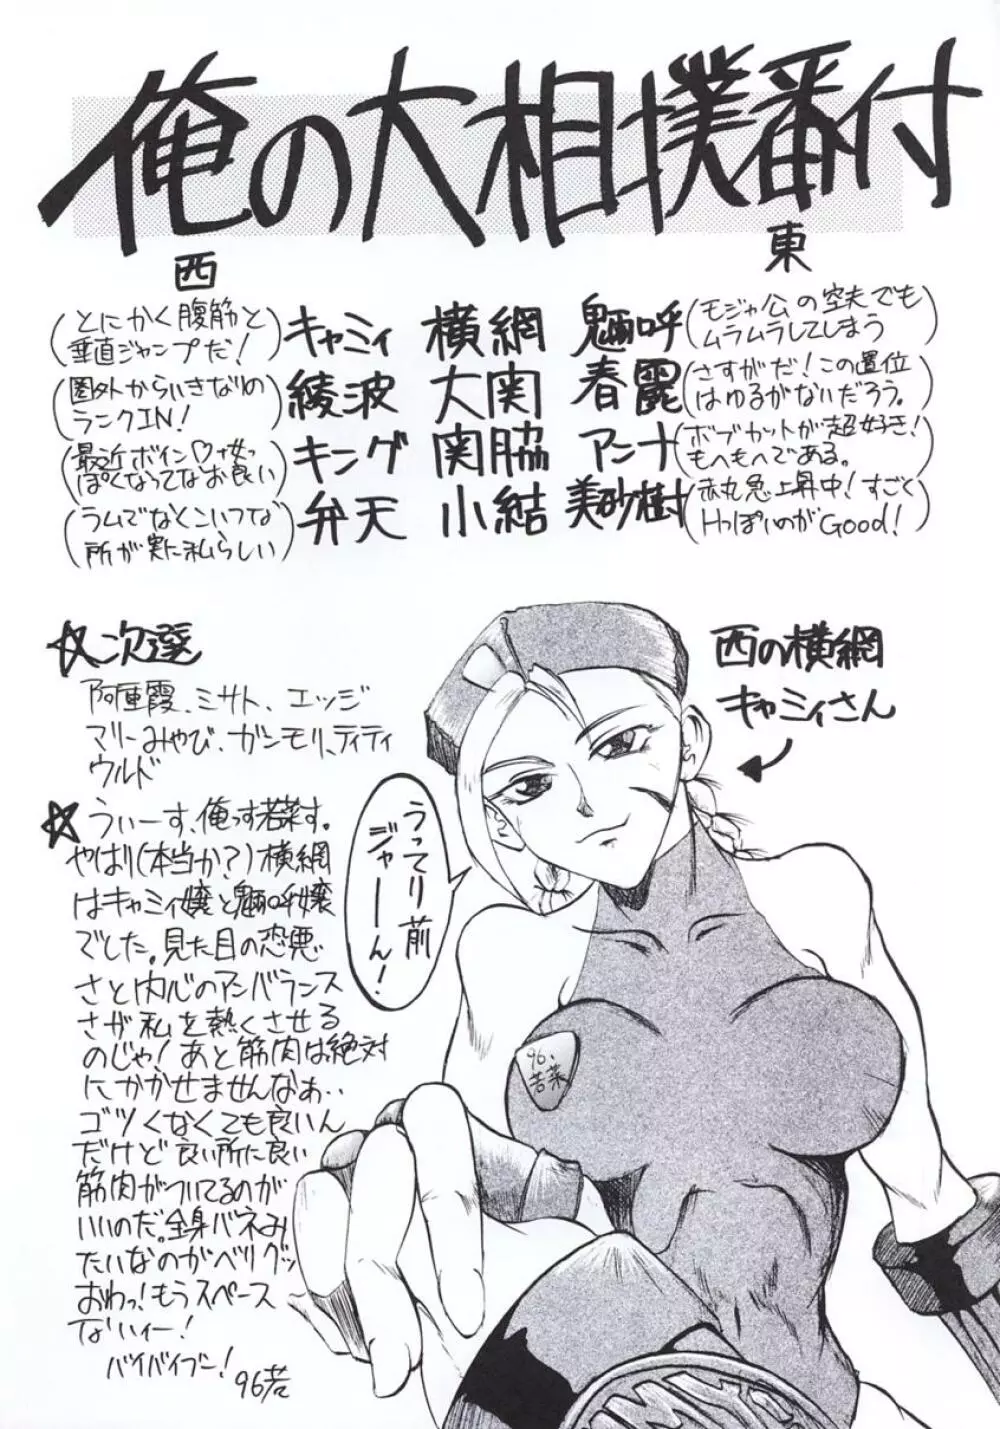 俺の大相撲番付
東
西
魎呼 横網 キャミィ
(モジャ公の空夫でも
ムラムラしてしまう)
(とにかく腹筋と
垂直ジャンプだ!)
春麗 大関 綾波
(さすがだ!この置位
はゆるがないだろう。)
(圏外からいきなりの
ランクIN!)
アンナ 関脇 キング
(ボブカットが超好き!
もへもへである。)
(最近ボイン♡女っ
ぽくなってなお良い)
美砂樹 小結 弁天
(赤丸急上昇中!すごく
HっぽいのがGood!)
(ラムでなくこいつな
所が実に私らしい)
☆次選
阿重霞、ミサト、エッジ
マリーみやび、ガンモリ、ティティ
ウルド
☆うぃーす、俺っす若菜す。
やはり(本当か?)横網
はキャミィ嬢と魎呼嬢
でした。見た目の恐悪
さと内心のアンバランス
さが私を熱くさせる
のじゃ!あと筋肉は絶対
にかかせませんなぁ‥
ゴツくなくても良いん
だけど良い所に良い
筋肉がついてるのが
いいのだ。全身バネみ
たいなのがベリグッ
おわっ!もうスペース
ないィー!
バイバイブー!
96若
西の横網
キャミィさん
うってり前
ジャーーん!
96、
若菜